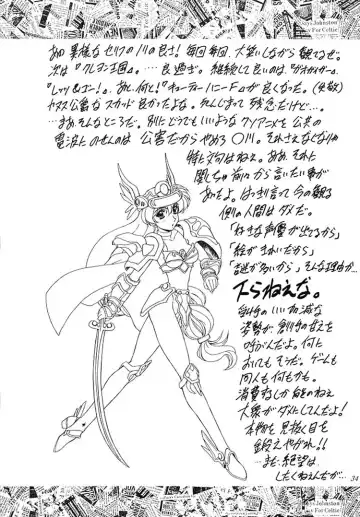 あの異様なセリフのノリの良さ！毎回毎回大笑いしながら観てるぜ。
次は『クレヨン王国』。… 良過ぎ。継続して良いのは『ガオガイガー』
『レッツ&ゴー！』。あ、何と！『キューティーハニーF』が良くなった。(失敬)
良かったよな。
…まあ、そんなところだ。別にどうでもいいようなクソアニメを公共の
電波にのせんのは公害だからやめろ〇〇。それさえなくなりゃ
特に文句はねェ。ああ、それに
関しちゃ前々から言いたい事が
あったよ。はっきり言って今の観る
側の人間はダメだ。
「好きな声優が出てるから」
「絵がきれいだから」
「謎が多いから」そんな理由か…
下らねえな。
受け手のいい加減な
姿勢が、創り手の甘えを
呼ぶんだよ。何に
おいてもそうだ。ゲームも
同人も何もかも。
消費するしか能のねェ
大衆がダメにしてんだよ！
本物を見抜く目を
鍛えやがれ！！
…まだ絶望は
してねえんだが…
34
ys Johnston
y For Celtic
ys Johnston
y For Celtic